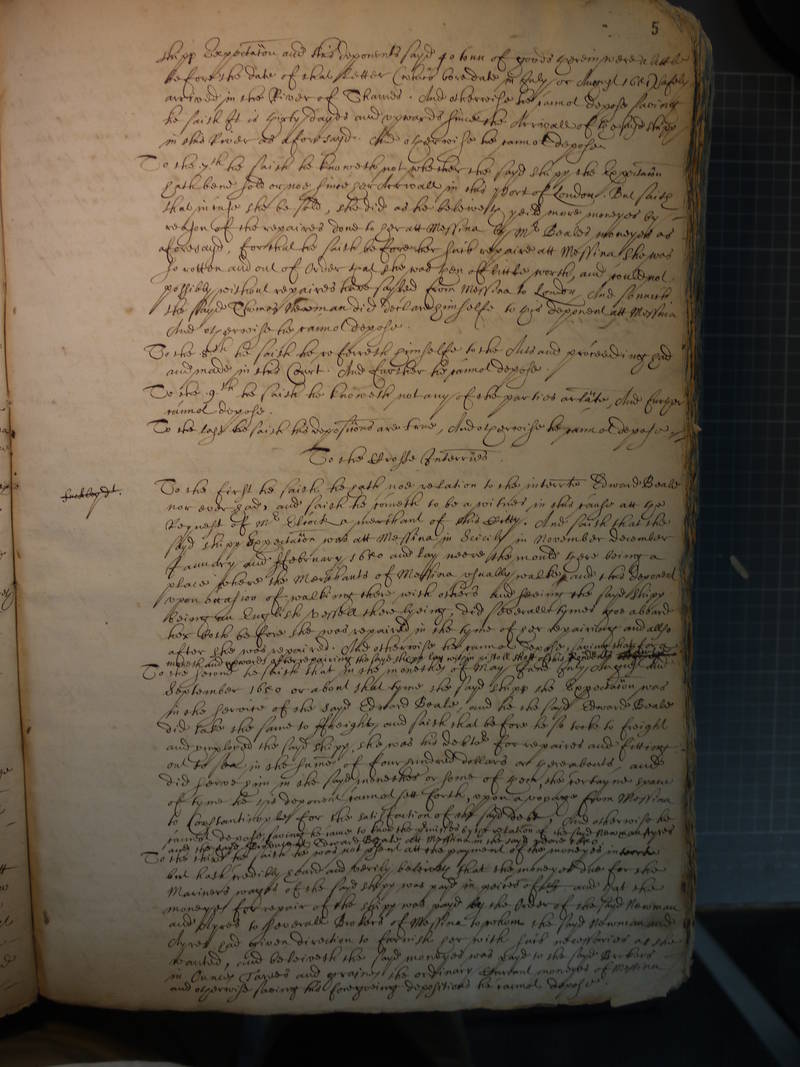 5
shipp Expectation and this deponents sayd 40 tonn of goods therein were a little
before the date of that letter (which bore date in July or August 1651) safely
arrived in the River of Thames. And otherwise he cannot depose saving
he saith it is thirty dayes and upwards since the Arrivall of the said shipp
in this River as aforesayd. And otherwise he cannot depose.
To the 7th he saith he knoweth not whether the sayd shipp the Expectation
hath bene sold or noe since her Arrivall in this Port of London, But saith
that in case she be sold, she did as he beleiveth yeild more moneyes by
reason of the repaires done to her att Messina by Mr Beales moneyes as
aforesayd, for that he saith before her said repaire att Messina she was
so rotten and out of Order that she was then of little worth, and could not
possibly without repaires have sayled from Messina to London, And so much
the sayd Thomas Newman did declare himselfe to this deponent att Messina
And otherwise he cannot depose.
To the 8th he saith he referreth himselfe to the Acts and proceedings had
and made in this Court. And further he cannot depose.
To the 9th he saith he knoweth not any of the parties arlate, And further
cannot depose.
To the last he saith his depositions are true, And otherwise he cannot depose
To the Crosse Interries.
To the first he saith he hath noe relation to the interrte Edward Beale
nor ever had, and saith he cometh to be a witnes in this cause att the
Request of Mr Elcock a merchant of this Citty. And saith that the
sayd shipp Expectation was att Messina in Sicily in November december
January and ffebruary 1650 and lay neere the monds there being a
place where the Merchants of Messina usually walke, and this deponent
upon occasion of walking there with others And seeing the sayd shipp
being an English vessell there lyeing, did severall tymes goe aboard
her both before she was repaired in the tyme of her repairing and allso
after she was repaired. And otherwise he cannot depose, saving that for a
moneth and upwards after repairing the sayd shipp lay within pistoll shott of this
To the second he saith that in the moneths of May June July August and
September 1650 or about that tyme the sayd shipp the Expectation was
in the service of the sayd Edward Beale, and he the sayd Edward Beale
did take the same to ffreight, and saith that before he so tooke to freight
and employed the sayd shipp, she was his debtor for repaires and fitting
out to sea in the summe of four hundred dollars or thereabouts, and
did serve him in the sayd moneths or some of them, the certayne space
of tyme he this deponent cannot sett forth, upon a voyage from Messina
to Constantinople for the satisfaction of the sayd debt, And otherwise he
cannot depose, saving he came to know the premisses by the relation of the sayd Newman Ayres
and the sayd Edward Beale att Messina in the sayd yeare 1650.
To the third he saith he was not present att the payment of the moneyes interrte
but hath credibly heard and verily beleives that the moneyes due for the
Mariners wages of the sayd shipp was payd in peices of and that the
moneyes for repair of the shipp was payd by the Order of the sayd Newman
and Ayres to severall Brokers of Messina to whom the sayd Newman and
Ayres had given direction to furnish her with such necessaries as she
wanted, and beleiveth the sayd moneyes was payd to the sayd Brokers
in Ounces Tarrees and graines the ordinary Current moneyes of Messina
and otherwise saving his foregoeing depositions he cannot depose.